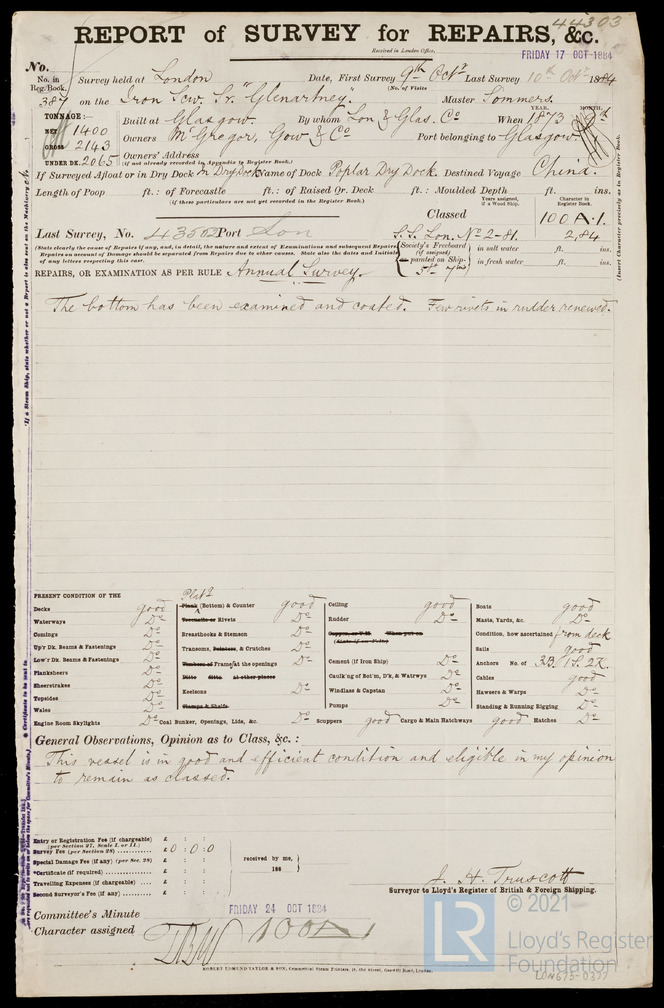 44303
REPORT of SURVEY for REPAIRS, &c.
Received in London Office, FRIDAY 17 OCT 1884
No.
No. in Reg. Book. Survey held at London Date, First Survey 9th Octr Last Survey 10th Octr 1884
(No. of Visits
387 on the Iron Scw. Sr. "Glenartney". Master Sommers.
TONNAGE:— Built at Glasgow. By whom Lon & Glas. Co When 1873 YEAR. MONTH.
NET 1400
GROSS 2143 Owners McGregor, Gow & Co Port belonging to Glasgow.
UNDER DK. 2065 Owners' Address
(if not already recorded in Appendix to Register Book.)
If Surveyed Afloat or in Dry Dock in Dry Dock Name of Dock Poplar Dry Dock. Destined Voyage China.
Length of Poop ft.: of Forecastle ft.: of Raised Qr. Deck ft.: Moulded Depth ft. ins.
(if these particulars are not yet recorded in the Register Book.)
Years assigned, if a Wood Ship. Character in Register Book.
Classed 100 A.1.
Last Survey, No. 43502 Port Lon S.S. Lon. No 2-81. 2,84
(State clearly the cause of Repairs if any, and, in detail, the nature and extent of Examinations and subsequent Repairs.
Repairs on account of Damage should be separated from Repairs due to other causes. State also the dates and Initials
of any letters respecting this case.
Society's Freeboard (if assigned) as painted on Ship- 5ft 7ins
in salt water ft. ins.
in fresh water ft. ins.
REPAIRS, OR EXAMINATION AS PER RULE Annual Survey.
The bottom has been examined and coated. Few rivets in rudder renewed.
(Insert Character precisely as in Register Book.
PRESENT CONDITION OF THE
Decks good
Waterways Do
Comings Do
Up'r Dk. Beams & Fastenings Do
Low'r Dk. Beams & Fastenings Do
Planksheers Do
Sheerstrakes Do
Topsides Do
Wales Do
Engine Room Skylights Do
Platg
Plank (Bottom) & Counter good
Treenails or Rivets Do
Breasthooks & Stemson Do
Transoms, Pointers, & Crutches Do
Timbers of Frame at the openings Do
Ditto ditto at other places
Keelsons Do
Clamps & Shelfs
Coal Bunker, Openings, Lids, &c. Do
Ceiling good
Rudder Do
Cement (if Iron Ship) Do
Caulk'ng of Bot'm, D'k, & Watrwys Do
Windlass & Capstan Do
Pumps Do
Scuppers good Cargo & Main Hatchways good Hatches Do
Boats good
Masts, Yards, &c. Do
Condition, how ascertained from deck
Sails good
Anchors No. of 3B. 1S. 2K.
Cables good
Hawsers & Warps Do
Standing & Running Rigging Do
General Observations, Opinion as to Class, &c. :
This vessel is in good and efficient condition and eligible in my opinion
to remain as classed.
Entry or Registration Fee (if chargeable) £ : :
(per Section 27, Scale I. or II.)
Survey Fee (per Section 28) £0 : 0 : 0
Special Damage Fee (if any) (per Sec. 28) £ : :
*Certificate (if required) £ : :
Travelling Expenses (if chargeable) £ : :
Second Surveyor's Fee (if any) £ : :
received by me,
188
J. H. Truscott
Surveyor to Lloyd's Register of British & Foreign Shipping.
Committee's Minute FRIDAY 24 OCT 1884
Character assigned 100A1
ROBERT EDMUND TAYLOR & SON, Commercial Steam Printers,
© 2021
LR
Lloyd's Register
Foundation
LON675-0377